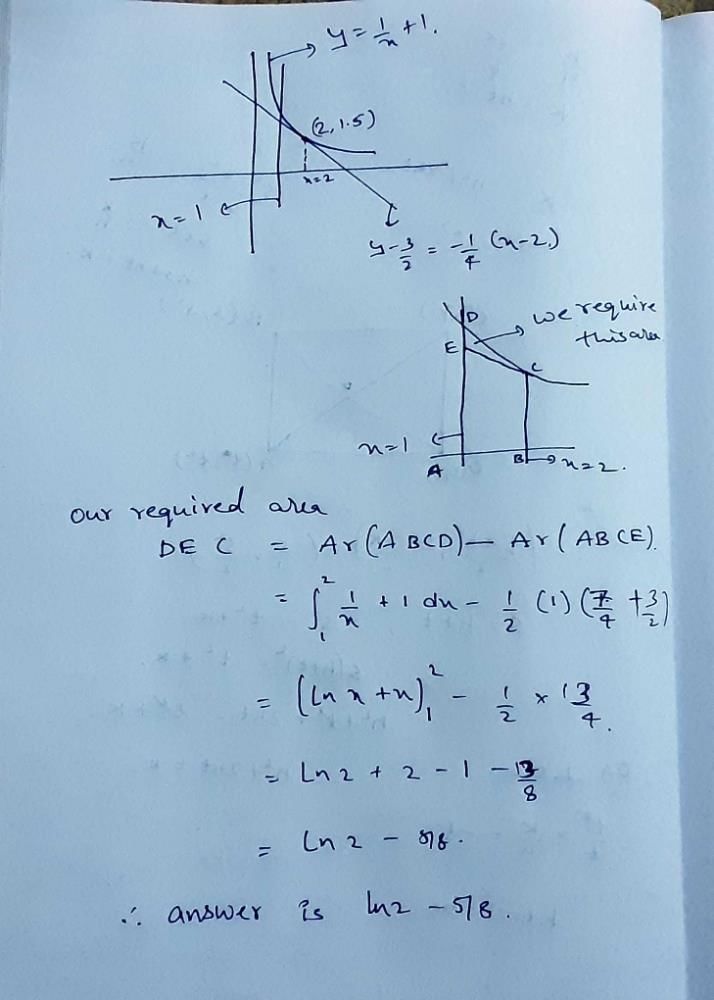 y = 1/x + 1.
(2, 1.5)
x=2
x=1
y - 3/2 = -1/4 (x-2)
D
we require
this area
E
C
x=1
A
B
x=2.
our required area
DEC = Ar(ABCD) — Ar(ABCE).
= ∫₁² 1/x + 1 dx - 1/2 (1) (7/4 + 3/2)
= (ln x + x)₁² - 1/2 × 13/4.
= Ln 2 + 2 - 1 - 13/8
= Ln 2 - 5/8.
∴ answer is ln2 - 5/8.